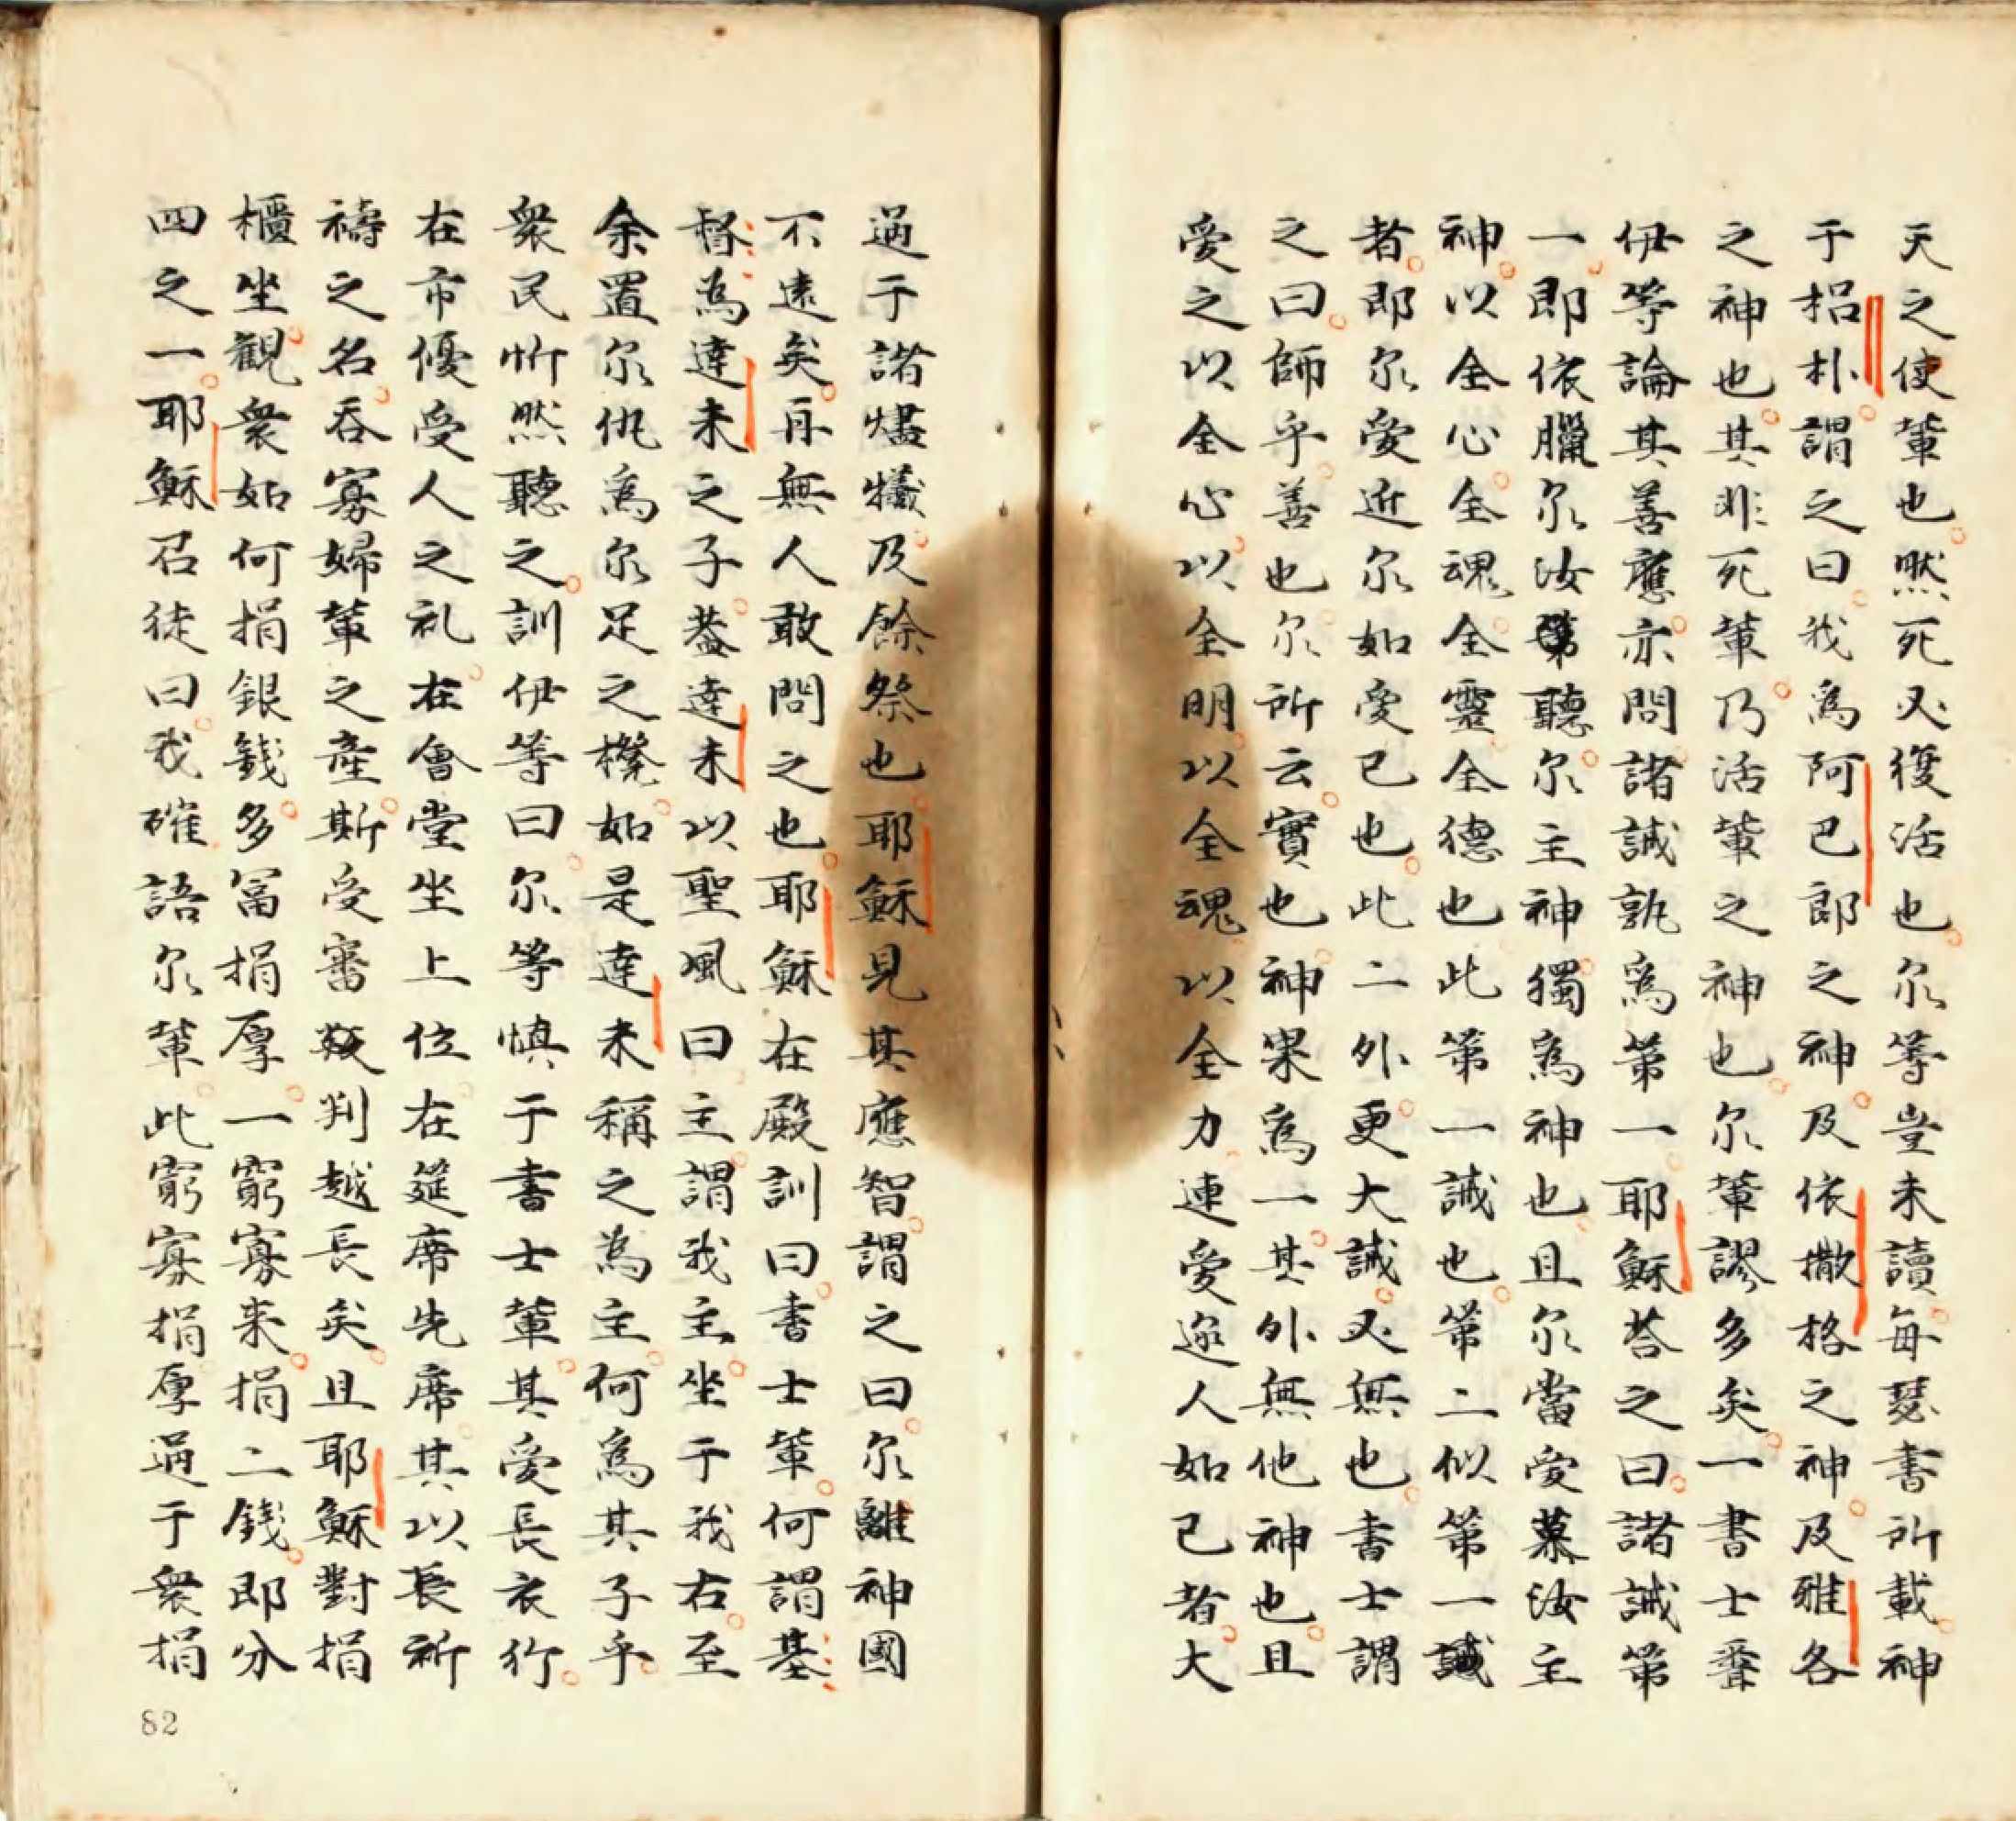 天之使輩也。然死必復活也。尔等豈未讀每瑟書所載。神
于梠朴。謂之曰。我為阿巴郎之神。及依撒格之神。及雅各
之神也。其非死輩。乃活輩之神也。尔輩謬多矣。一書士聞
伊等論其善應。亦問諸誡孰為第一。耶穌荅之曰。諸誡第
一。即依臘尔汝輩聽。尔主神獨為神也。且尔當愛慕汝主
神。以全心。全魂。全靈。全德也。此第一誡也。第二似第一誡
者。即尔愛近尔如愛己也。此二外。更大誡。又無也。書士謂
之曰。師乎。善也。尔所云。實也。神果為一。其外無他神也。且
愛之以全心。以全明。以全魂。以全力。連愛邇人如己者。大
過于諸燼犧。及餘祭也。耶穌見其應智。謂之曰。尔離神國
不遠矣。再無人敢問之也。耶穌在殿訓曰。書士輩。何謂基
督為達未之子。葢達未以聖風曰。主謂我主。坐于我右。至
余置尔仇為尔足之櫈。如是達未稱之為主。何為其子乎。
衆民忻然聽之。訓伊等曰。尔等慎于書士輩。其愛長衣行。
在市優受人之礼。在會堂坐上位。在筵席先席。其以長祈
禱之名。吞寡婦輩之產。斯受審判越長矣。且耶穌對捐
櫃坐。觀衆如何捐銀錢。多冨捐厚。一窮寡来。捐二錢。即分
四之一。耶穌召徒曰。我確語尔輩。此窮寡捐厚過于衆捐
82